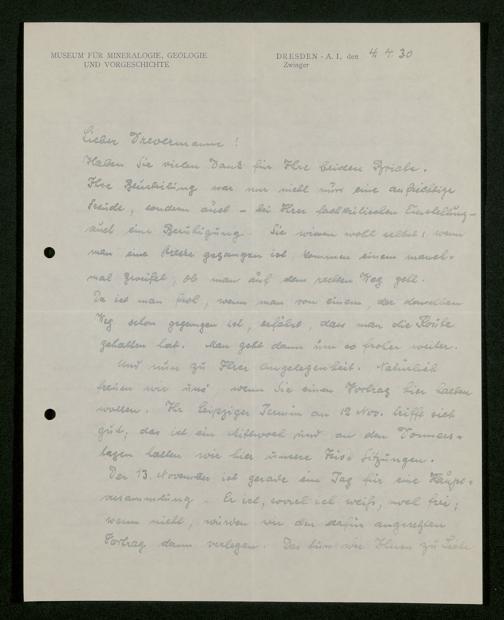 MUSEUM FÜR MINERALOGIE, GEOLOGIE
UND VORGESCHICHTE
DRESDEN - A. 1, den 4. 4. 30
Zwinger
Lieber Drevermann!
Haben Sie vielen Dank für Ihre beiden Briefe.
Ihre Beurteilung war mir nicht nur eine aufrichtige
Freude, sondern auch – bei Ihrer Einstellung –
auch eine Beruhigung. Sie wissen wohl selbst: wenn
man eine gegangen ist, kommen einem manch-
mal Zweifel, ob man auf dem rechten Weg geht.
Da ist man froh, wenn man von einem, der denselben
Weg schon gegangen ist, erfährt, dass man die Route
gehalten hat. Man geht dann um so froher weiter.
Und nun zu Ihrer Angelegenheit. Natürlich
freuen wir uns, wenn Sie einen Vortrag hier halten
wollen. Ihr Leipziger Termin am 12 Nov. trifft sich
gut, das ist ein Mittwoch und an den Donners-
tagen halten wir hier unsere Sitzungen.
Der 13. November ist gerade ein Tag für eine Haupt-
versammlung. Er ist, soviel ich weiß, noch frei;
wenn nicht, würden wir den dafür angesetzten
Vortrag dann verlegen. Das tun wir Ihnen zu Liebe